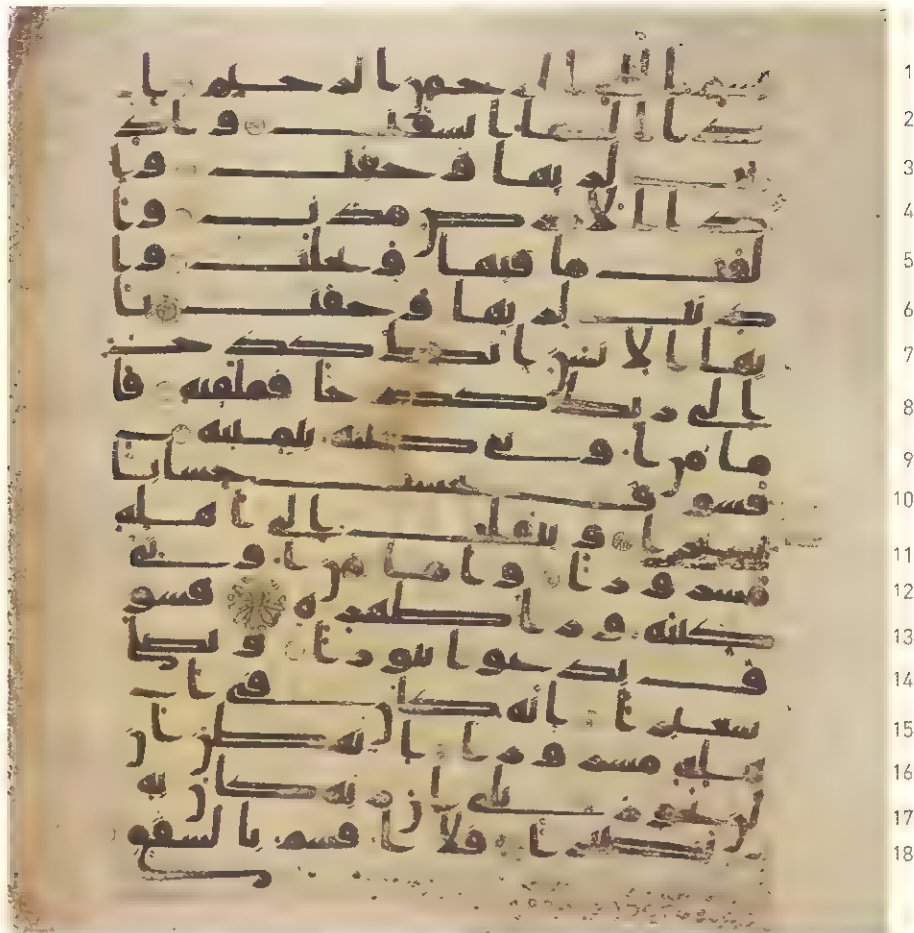 بسم الله الرحمن الرحيم ا
ذا السما انشقت واذ
نت لربها وحقت وا
ذا الارض مدت وا
لقت ما فيها وتخلت وا
ذنت لربها وحقت يا
يها الانسن انك كدح
الى ربك كدحا فملقيه فا
ما من اوتى كتبه بيمينه
فسوف يحسب حسابا
يسيرا وينقلب الى اهله
مسرورا واما من اوتى
كتبه ورا ظهره فسو
ف يدعوا ثبورا ويصلى
سعيرا انه كان فى ا
هله مسرورا انه ظن ان
لن يحور بلى ان ربه كان به
بصيرا فلا اقسم بالشفق
1
2
3
4
5
6
7
8
9
10
11
12
13
14
15
16
17
18